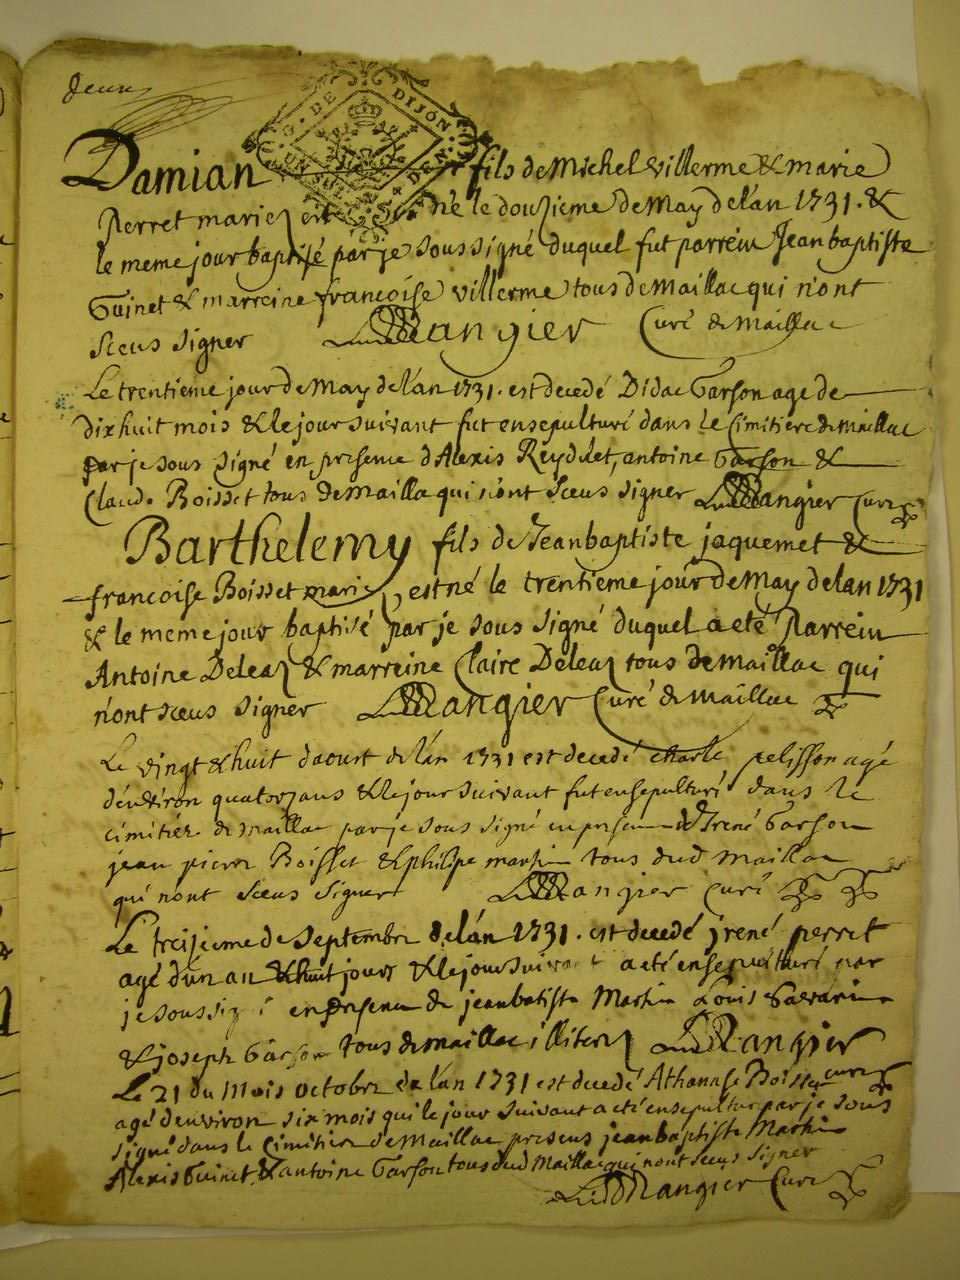 deux
G. DE DIJON
Damian fils de Michel villerme & marie
Perret mariez est né le douzieme de May de lán 1731. &
le meme jour baptisé par je sous signé duquel fut parrein Jean baptiste
Guinet & marreine francoise villerme tous de maillac qui n'ont
sceus signer Mangier Curé de maillac
Le trentieme jour de May de lán 1731. est decedé Didac Garson age de
dixhuit mois & le jour suivant fut ensepulturé dans le Cimitiere de maillac
par je sous signé en presence d'Alexis Reydet, antoine Garson &
Claude Boisset tous de mailla qui n'ont sceus signer Mangier Curé
Barthelemy fils de Jean baptiste jaquemet &
francoise Boisset mariez, est né le trentieme jour de May de lan 1731
& le meme jour baptisé par je sous signé duquel a eté Parrein
Antoine Deleaz & marreine Claire Deleaz tous de maillac qui
n'ont sceus signer Mangier Curé de maillac
Le vingt & huit d'aoust de lán 1731 est decedé charle pelisson agé
d'environ quatorz ans & le jour suivant fut ensepulturé dans le
cimitier de maillac par je sous signé en presence d'Irené Garson
jean pierre Boisset & philipe martin tous dud maillac
qui n'ont sceus signer Mangier Curé
Le treizieme de Septembre de lán 1731. est decedé jrené perret
agé d'un an & huit jours & le jour suivant a eté ensepulturé par
je sous signé en presence de jean batiste Martin Louis Gavarin
& joseph Garson tous de maillac illiterez Mangier
curé
Le 21 du Mois octobre de lán 1731 est decedé Athanase Boisset
agé d'environ six mois qui le jour suivant a eté ensepulturé par je sous
signé dans le Cimitier de Maillac presens jean baptiste Martin
Alexis Guinet, & antoine Garson tous dud Maillac qui n'ont sceus signer
Mangier Curé